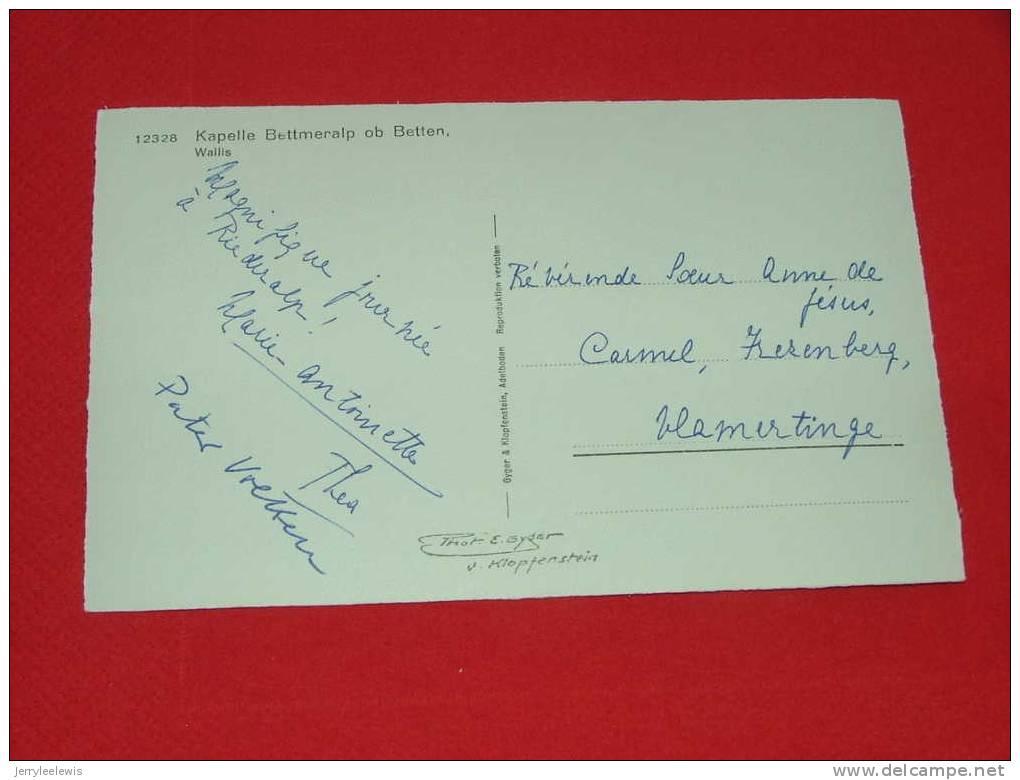 12328 Kapelle Bettmeralp ob Betten,
Wallis
Magnifique journée
à Riederalp!
Marie-Antoinette
Thea
Pater
Gyger & Klopfenstein, Adelboden Reproduktion verboten
Révérende Sœur Anne de
Jésus,
Carmel,
Vlamertinge
Phot. E. Gyger
v. Klopfenstein
jerryleelewis
www.delcampe.net